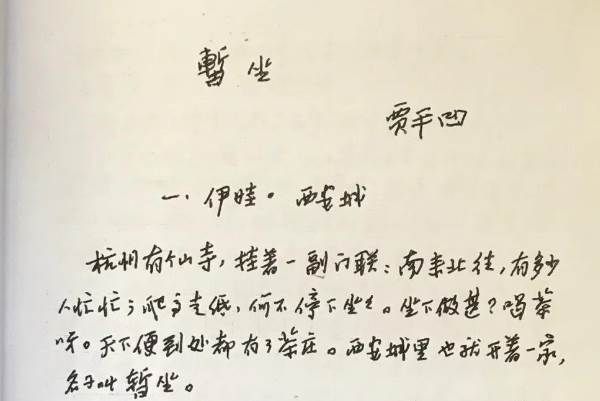 暫坐
贾平凹
一、伊娃·西安城
杭州有个山寺，挂着一副门联：南来北往，有多少
人忙忙；爬高走低，何不停下坐坐。坐下做甚？喝茶
呀。天下便到处都有了茶庄。西安城里也就开着一家，
名子叫暫坐。